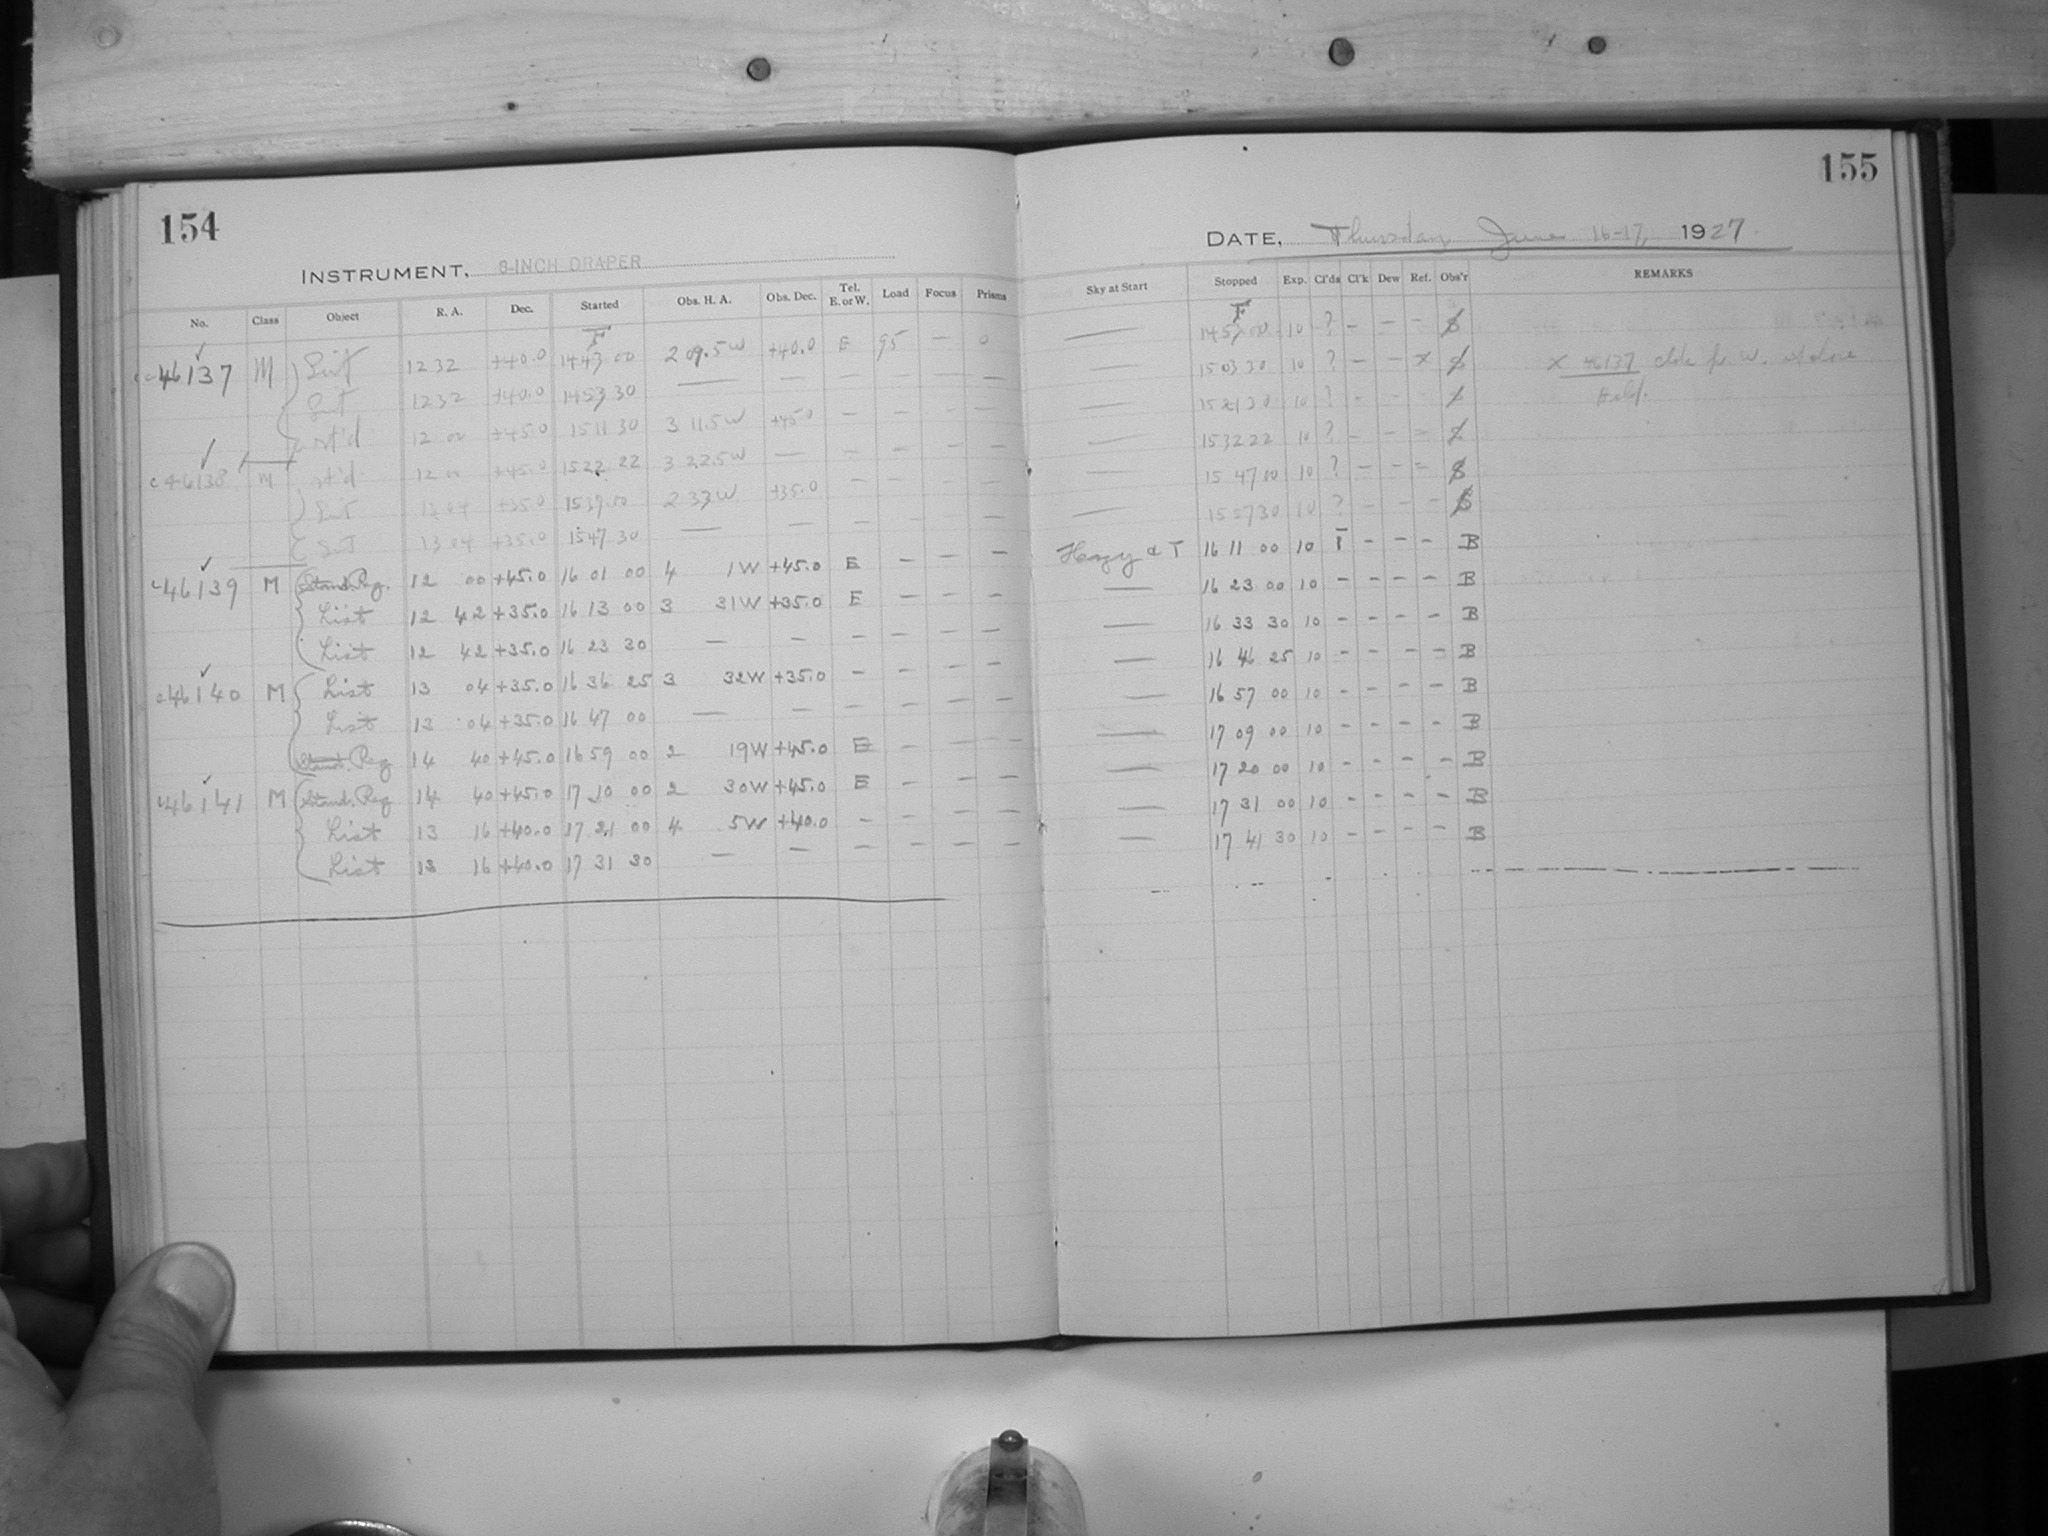 154
INSTRUMENT, 8-INCH DRAPER
No. Class Object R. A. Dec. Started Obs. H. A. Obs. Dec. Tel. E. or W. Load Focus Prisms
F
c46137 M List 12 32 +40.0 14 43 00 2 09.5W +40.0 E 95 — 0
List 12 32 +40.0 14 53 30 — — — — — —
st'd 12 00 +45.0 15 11 30 3 11.5W +45.0 — — — —
c46138 M st'd 12 00 +45.0 15 22 22 3 22.5W — — — — —
List 13 04 +35.0 15 37 00 2 33W +35.0 — — — —
List 13 04 +35.0 15 47 30 — — — — — —
c46139 M Stand. Reg. 12 00 +45.0 16 01 00 4 1W +45.0 E — — —
List 12 42 +35.0 16 13 00 3 31W +35.0 E — — —
List 12 42 +35.0 16 23 30 — — — — — —
c46140 M List 13 04 +35.0 16 36 25 3 32W +35.0 — — — —
List 13 04 +35.0 16 47 00 — — — — — —
Stand. Reg 14 40 +45.0 16 59 00 2 19W +45.0 E — — —
c46141 M Stand. Reg 14 40 +45.0 17 10 00 2 30W +45.0 E — — —
List 13 16 +40.0 17 21 00 4 5W +40.0 — — — —
List 13 16 +40.0 17 31 30 — — — — — —
155
DATE, Thursday June 16-17, 1927
Sky at Start Stopped Exp. Cl'ds Cl'k Dew Ref. Obs'r REMARKS
F
— 14 53 00 10 ? — — —
— 15 03 30 10 ? — — x x 46137 W. above
— 15 21 30 10 ? — — —
— 15 32 22 10 ? — — —
— 15 47 00 10 ? — — —
— 15 57 30 10 ? — — —
Hazy & T 16 11 00 10 — — — B
— 16 23 00 10 — — — — B
— 16 33 30 10 — — — — B
— 16 46 25 10 — — — — B
— 16 57 00 10 — — — — B
— 17 09 00 10 — — — — B
— 17 20 00 10 — — — — B
— 17 31 00 10 — — — — B
— 17 41 30 10 — — — — B